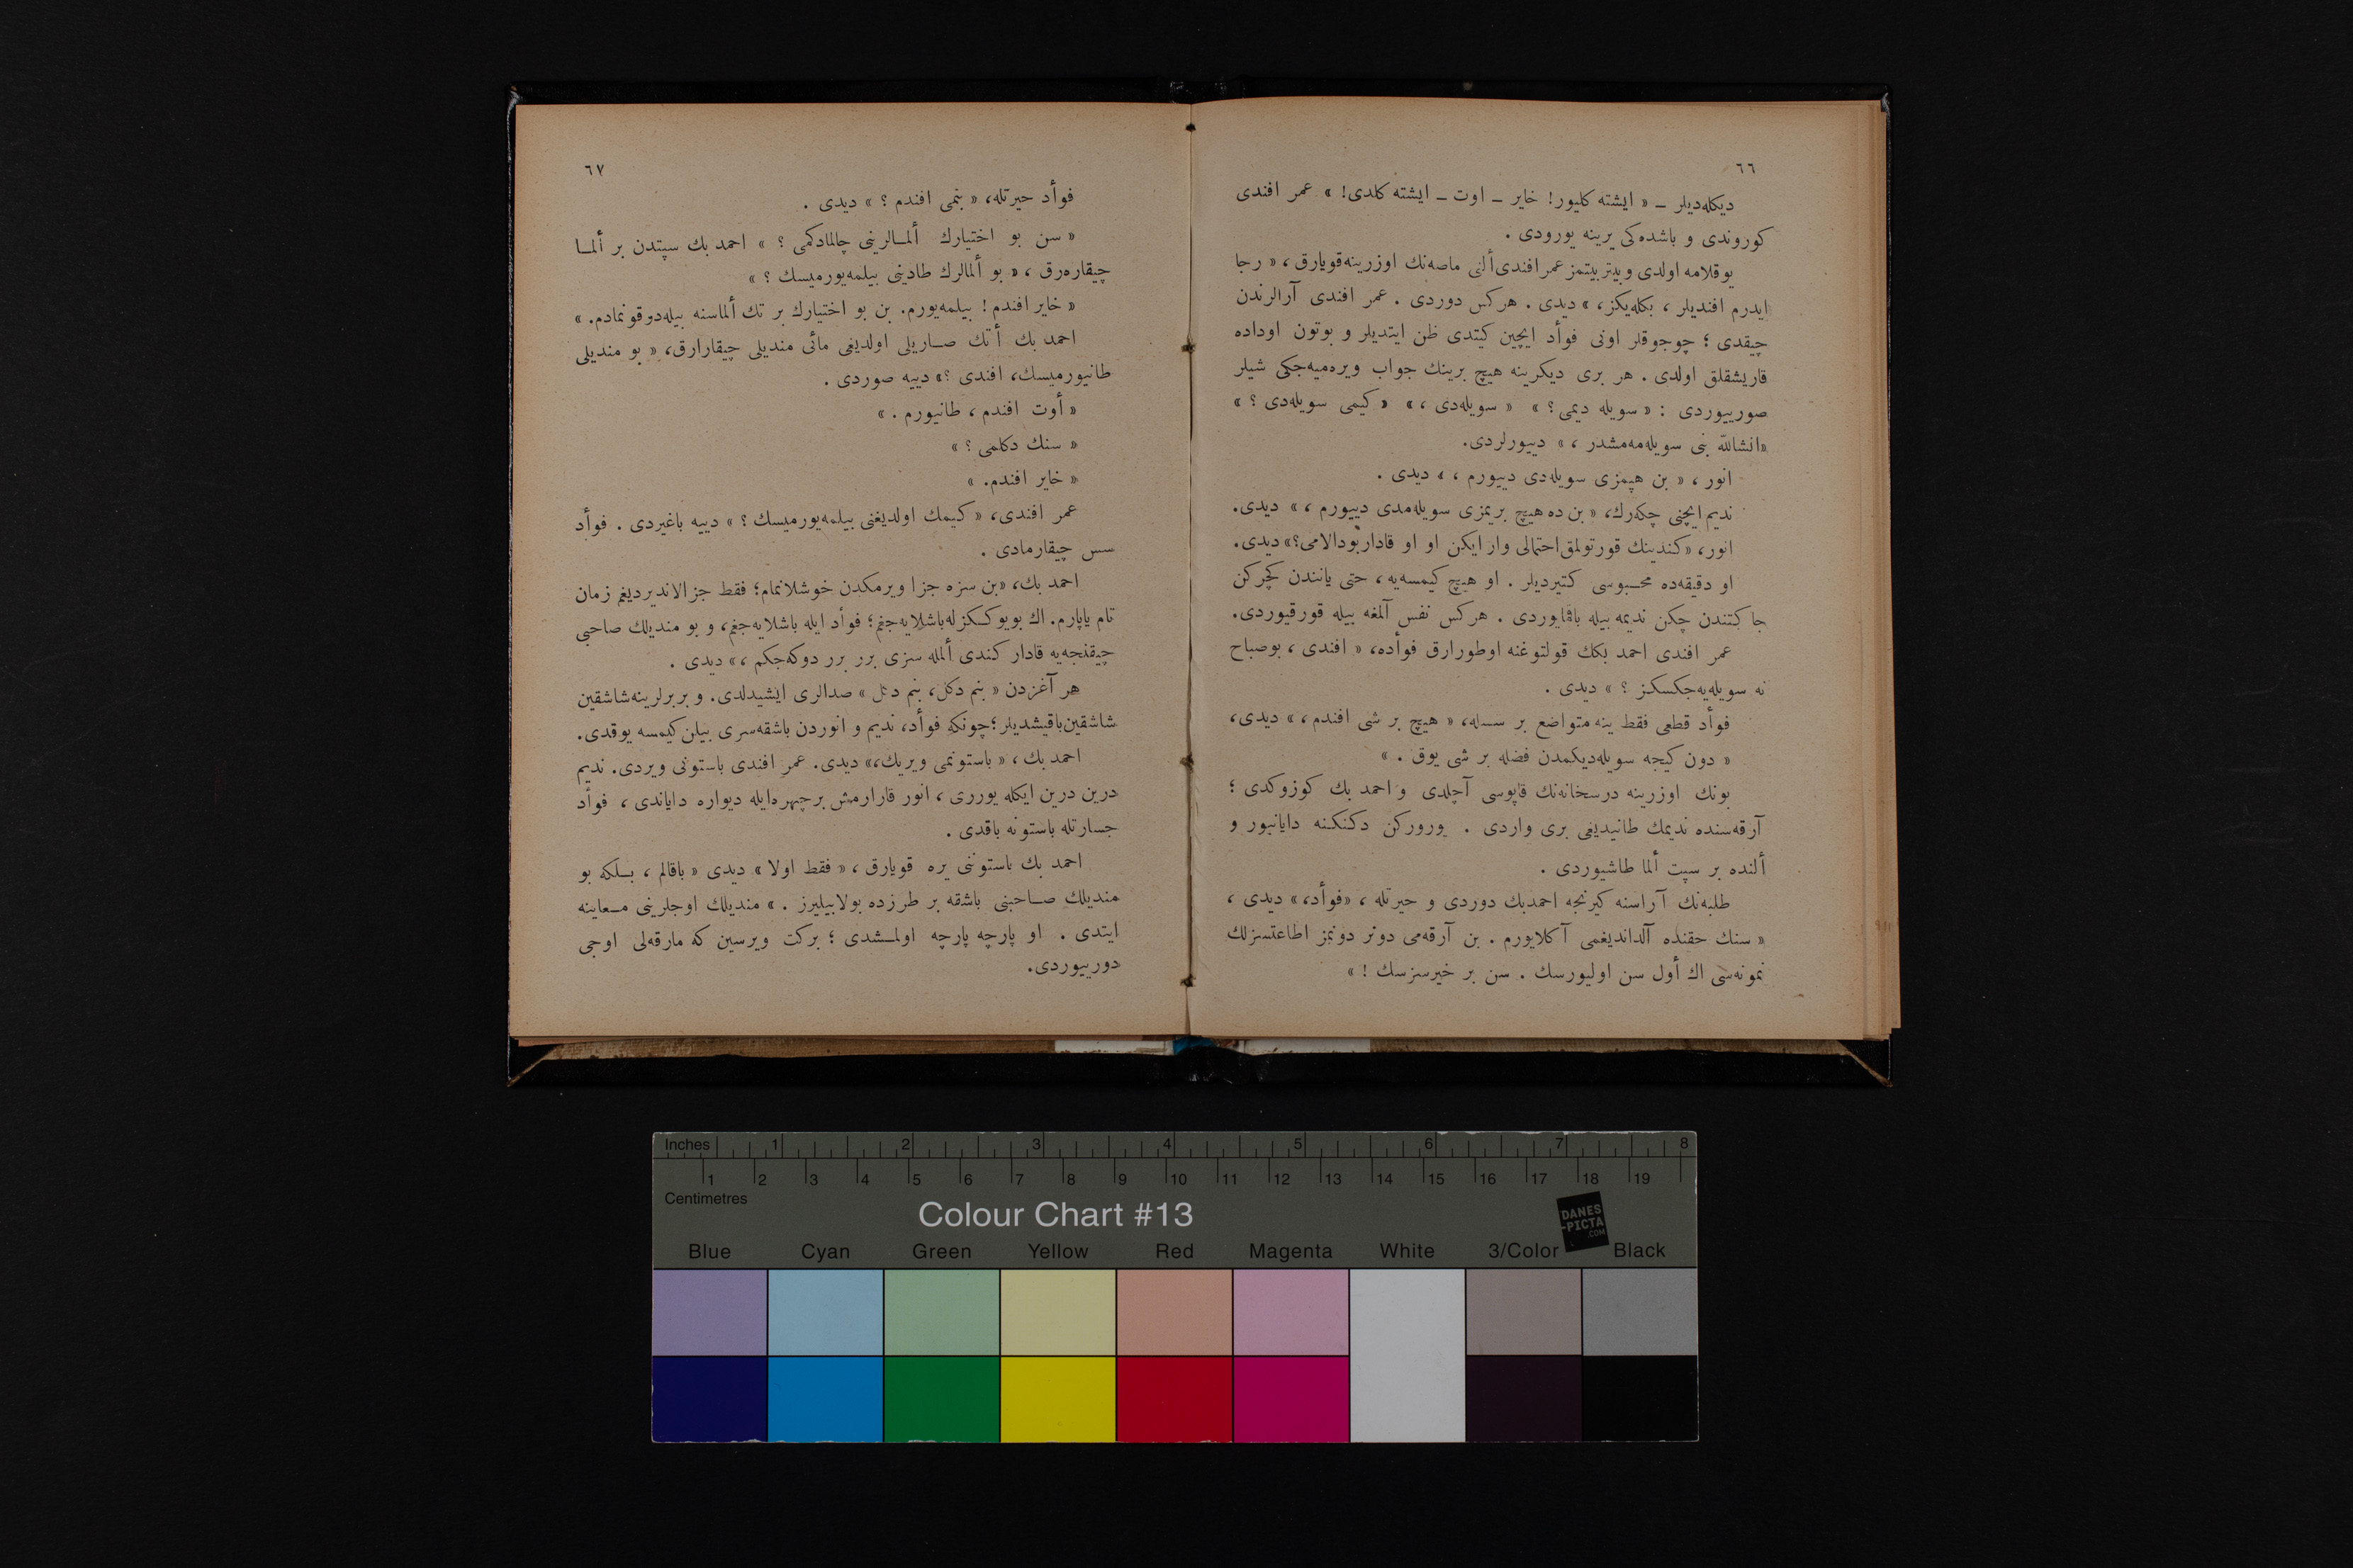 ٦٦
ديكله‌ديلر ــ « ايشته كليور! خاير ــ اوت ــ ايشته كلدى! » عمر افندى
كوروندى و باشده‌كى يرينه يورودى .
يوقلامه اولدى و بيتر بيتمز عمر افندى ألنى ماصه‌نك اوزرينه قويارق ، « رجا
ايدرم افنديلر ، بكله‌يكز ، » ديدى . هركس دوردى . عمر افندى آرالرندن
چيقدى ؛ چوجوقلر اونى فوأد ايچين كيتدى ظن ايتديلر و بوتون اوداده
قاريشقلق اولدى . هر برى ديكرينه هيچ برينك جواب ويره‌ميه‌جكى شيلر
صورييوردى : « سويله ديمى ؟ » « سويله‌دى ، » « كيمى سويله‌دى ؟ »
«انشاالله بنى سويله‌مه‌مشدر ، » دييورلردى.
انور ، « بن هپمزى سويله‌دى دييورم ، » ديدى .
نديم ايچنى چكه‌رك، « بن ده هيچ بريمزى سويله‌مدى دييورم ، » ديدى.
انور، «كندينك قورتولمق احتمالى وار ايكن او او قادار بودالامى؟» ديدى.
او دقيقه‌ده محبوسى كتيرديلر . او هيچ كيمسه‌يه ، حتى يانندن كچركن
جاكتندن چكن نديمه بيله باقمايوردى . هركس نفس آلمغه بيله قورقيوردى.
عمر افندى احمد بكك قولتوغنه اوطورارق فوأده، « افندى ، بوصباح
نه سويله‌يه‌جكسكز ؟ » ديدى .
فوأد قطعى فقط ينه متواضع بر سسله، « هيچ بر شى افندم ، » ديدى،
« دون كيجه سويله‌ديكمدن فضله بر شى يوق . »
بونك اوزرينه درسخانه‌نك قاپوسى آچلدى و احمد بك كوزوكدى ؛
آرقه‌سنده نديمك طانيديغى برى واردى . يوروركن دكنكنه دايانيور و
ألنده بر سپت ألما طاشيوردى .
طلبه‌نك آراسنه كيرنجه احمدبك دوردى و حيرتله ، «فوأد، » ديدى ،
« سنك حقنده آلدانديغمى آكلايورم . بن آرقه‌مى دونر دونمز اطاعتسزلك
نمونه‌سى اك أول سن اوليورسك . سن بر خيرسزسك ! »
٦٧
فوأد حيرتله، « بنمى افندم ؟ » ديدى .
« سن بو اختيارك ألمـالرينى چالمادكمى ؟ » احمد بك سپتدن بر ألمـا
چيقاره‌رق ، « بو ألمالرك طادينى بيلمه‌يورميسك ؟ »
« خاير افندم ! بيلمه‌يورم. بن بو اختيارك بر تك ألماسنه بيله‌دوقونمادم. »
احمد بك أتك صـاريلى اولديغى مائى منديلى چيقارارق، « بو منديلى
طانيورميسك، افندى ؟» دييه صوردى .
« أوت افندم ، طانيورم . »
« سنك دكلمى ؟ »
« خاير افندم. »
عمر افندى، « كيمك اولديغنى بيلمه‌يورميسك ؟ » دييه باغيردى . فوأد
سس چيقارمادى .
احمد بك، «بن سزه جزا ويرمكدن خوشلانمام؛ فقط جزالانديرديغم زمان
تام ياپارم. اك بويوكسكزله‌باشلايه‌جغم؛ فوأد ايله باشلايه‌جغم، و بو منديلك صاحبى
چيقنجه‌يه قادار كندى ألمله سزى برر برر دوكه‌جكم ، » ديدى .
هر آغزدن « بنم دكل، بنم دكل » صدالرى ايشيدلدى. و بربرلرينه شاشقين
شاشقين باقيشديلر ؛ چونكه فوأد، نديم و انوردن باشقه‌سرى بيلن كيمسه يوقدى.
احمد بك ، « باستونمى ويريك،» ديدى. عمر افندى باستونى ويردى. نديم
درين درين ايكله يوررى ، انور قارارمش برچهره‌ايله ديواره داياندى ، فوأد
جسارتله باستونه باقدى .
احمد بك باستوننى يره قويارق ، « فقط اولا » ديدى « باقالم ، بـلكه بو
منديلك صـاحبنى باشقه بر طرزده بولابيليرز . » منديلك اوجلرينى مـعاينه
ايتدى . او پارچه پارچه اولمـشدى ؛ بركت ويرسين كه مارقه‌لى اوجى
دورييوردى.
Inches 1 2 3 4 5 6 7 8
1 2 3 4 5 6 7 8 9 10 11 12 13 14 15 16 17 18 19
Centimetres
Colour Chart #13
DANES
-PICTA
.COM
Blue Cyan Green Yellow Red Magenta White 3/Color Black